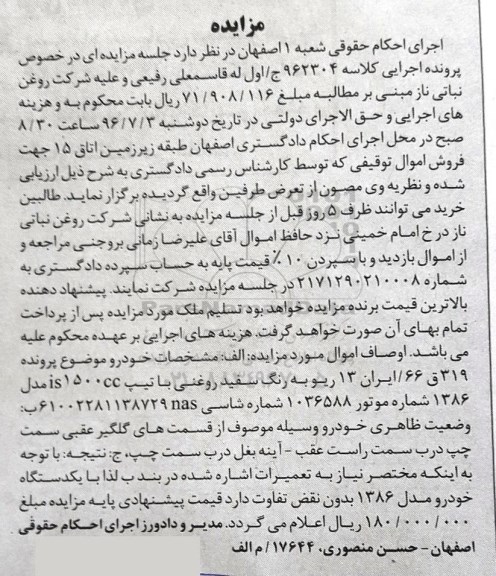 مزایده
اجرای احکام حقوقی شعبه ۱ اصفهان در نظر دارد جلسه مزایده ای در خصوص
پرونده اجرایی کلاسه ۹۶۲۳۰۴ ج/اول له قاسمعلی رفیعی و علیه شرکت روغن
نباتی ناز مبنی بر مطالبه مبلغ ۷۱/۹۰۸/۱۱۶ ریال بابت محکوم به و هزینه
های اجرایی و حق الاجرای دولتی در تاریخ دوشنبه ۹۶/۷/۳ ساعت ۸/۳۰
صبح در محل اجرای احکام دادگستری اصفهان طبقه زیرزمین اتاق ۱۵ جهت
فروش اموال توقیفی که توسط کارشناس رسمی دادگستری به شرح ذیل ارزیابی
شده و نظریه وی مصون از تعرض طرفین واقع گردیده برگزار نماید. طالبین
خرید می توانند ظرف ۵ روز قبل از جلسه مزایده به نشانی شرکت روغن نباتی
ناز در خ امام خمینی نزد حافظ اموال آقای علیرضا زمانی بروجنی مراجعه و
از اموال بازدید و با سپردن ۱۰٪ قیمت پایه به حساب سپرده دادگستری به
شماره ۲۱۷۱۲۹۰۲۱۰۰۰۸ در جلسه مزایده شرکت نمایند. پیشنهاد دهنده
بالاترین قیمت برنده مزایده خواهد بود تسلیم ملک مورد مزایده پس از پرداخت
تمام بهای آن صورت خواهد گرفت. هزینه های اجرایی بر عهده محکوم علیه
می باشد. اوصاف اموال مورد مزایده: الف: مشخصات خودرو موضوع پرونده
۳۱۹ ق ۶۶/ایران ۱۳ ریو به رنگ سفید روغنی با تیپ is۱۵۰۰cc مدل
۱۳۸۶ شماره موتور ۱۰۳۶۵۸۸ شماره شاسی nas ۶۱۰۰۲۲۸۱۱۳۸۷۲۹ ب:
وضعیت ظاهری خودرو وسیله موصوف از قسمت های گلگیر عقبی سمت
چپ درب سمت راست عقب - آینه بغل درب سمت چپ، ج: نتیجه: با توجه
به اینکه مختصر نیاز به تعمیرات اشاره شده در بند ب لذا با یکدستگاه
خودرو مدل ۱۳۸۶ بدون نقض تفاوت دارد قیمت پیشنهادی پایه مزایده مبلغ
۱۸۰/۰۰۰/۰۰۰ ریال اعلام می گردد. مدیر و دادورز اجرای احکام حقوقی
اصفهان - حسن منصوری، ۱۷۶۴۴/م الف